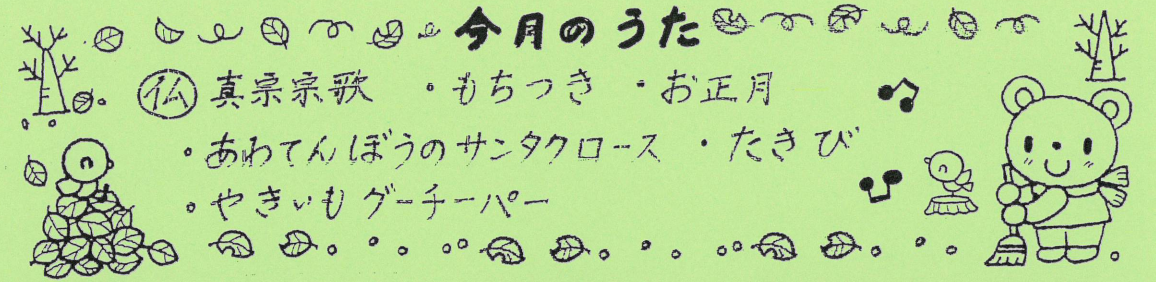 今月のうた
㋫真宗宗歌 ・もちつき ・お正月
・あわてんぼうのサンタクロース ・たきび
・やきいもグーチーパー